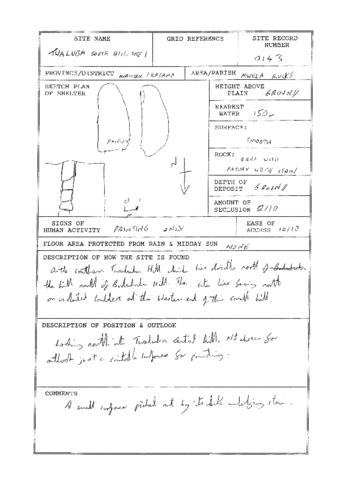 SITE NAME
GRID REFERENCE
SITE RECORD NUMBER
TWALUBA SOUTH HILL No 1
0143
PROVINCE/DISTRICT NORTHERN / KASAMA
AREA/PARISH MWELA ROCKS
SKETCH PLAN OF SHELTER
HEIGHT ABOVE PLAIN GROUND
NEAREST WATER 150m
SURFACE:
SMOOTH
ROCK:
GREY WITH
PATCHY WHITE STAIN
DEPTH OF DEPOSIT GROUND
AMOUNT OF SECLUSION 2/10
PAINTING
N
SIGNS OF HUMAN ACTIVITY PAINTING ONLY
EASE OF ACCESS 10/10
FLOOR AREA PROTECTED FROM RAIN & MIDDAY SUN NONE
DESCRIPTION OF HOW THE SITE IS FOUND
On the southern Twaluba Hill which lies directly north of
the hill north of Hill. The site lies facing north
on isolated boulders at the western end of this small hill
DESCRIPTION OF POSITION & OUTLOOK
Looking north into Twaluba central hill. Not chosen for
outlook just a suitable surface for painting.
COMMENTS
A small surface picked out by its dark underlying stain.